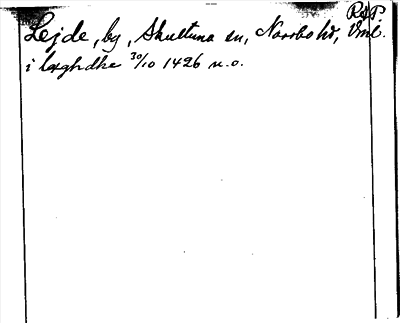 RAP.
Lejde, by, Skultuna sn, Norrbo hd, Vml.
i leghdhe 30/10 1426 n.o.